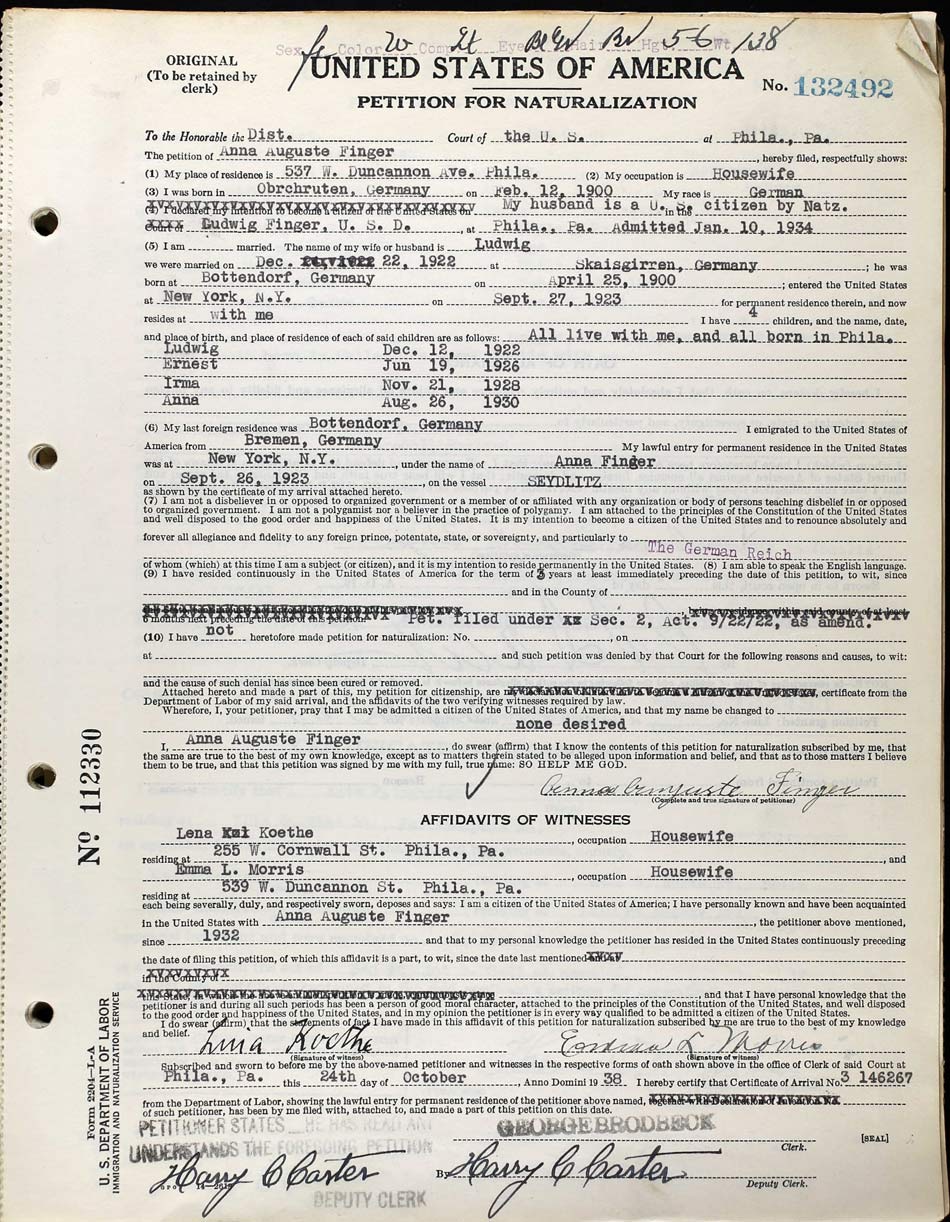 Sex Fe Color W Comp Lt Eye Bl Gr Hair Br Hgt 5-6 Wt 138
ORIGINAL
(To be retained by
clerk)
UNITED STATES OF AMERICA
PETITION FOR NATURALIZATION
No. 132492
To the Honorable the Dist. Court of the U. S. at Phila., Pa.
The petition of Anna Auguste Finger, hereby filed, respectfully shows:
(1) My place of residence is 537 W. Duncannon Ave. Phila. (2) My occupation is Housewife
(3) I was born in Obrchruten, Germany on Feb. 12, 1900 My race is German
(4) I declared my intention to become a citizen of the United States on My husband is a U. S. citizen by Natz. in the
Court of Ludwig Finger, U. S. D., at Phila., Pa. Admitted Jan. 10, 1934
(5) I am married. The name of my wife or husband is Ludwig
we were married on Dec. 22, 1922 at Skaisgirren, Germany; he was
born at Bottendorf, Germany on April 25, 1900; entered the United States
at New York, N.Y. on Sept. 27, 1923 for permanent residence therein, and now
resides at with me I have 4 children, and the name, date,
and place of birth, and place of residence of each of said children are as follows: All live with me, and all born in Phila.
Ludwig Dec. 12, 1922
Ernest Jun 19, 1926
Irma Nov. 21, 1928
Anna Aug. 26, 1930
(6) My last foreign residence was Bottendorf, Germany I emigrated to the United States of
America from Bremen, Germany My lawful entry for permanent residence in the United States
was at New York, N.Y., under the name of Anna Finger
on Sept. 26, 1923, on the vessel SEYDLITZ
as shown by the certificate of my arrival attached hereto.
(7) I am not a disbeliever in or opposed to organized government or a member of or affiliated with any organization or body of persons teaching disbelief in or opposed
to organized government. I am not a polygamist nor a believer in the practice of polygamy. I am attached to the principles of the Constitution of the United States
and well disposed to the good order and happiness of the United States. It is my intention to become a citizen of the United States and to renounce absolutely and
forever all allegiance and fidelity to any foreign prince, potentate, state, or sovereignty, and particularly to
The German Reich
of whom (which) at this time I am a subject (or citizen), and it is my intention to reside permanently in the United States. (8) I am able to speak the English language.
(9) I have resided continuously in the United States of America for the term of 3 years at least immediately preceding the date of this petition, to wit, since
and in the County of
being a residence within said county of at least
6 months next preceding the date of this petition. Pet. filed under xx Sec. 2, Act. 9/22/22, as amend.
(10) I have not heretofore made petition for naturalization: No. , on
at and such petition was denied by that Court for the following reasons and causes, to wit:
and the cause of such denial has since been cured or removed.
Attached hereto and made a part of this, my petition for citizenship, are , certificate from the
Department of Labor of my said arrival, and the affidavits of the two verifying witnesses required by law.
Wherefore, I, your petitioner, pray that I may be admitted a citizen of the United States of America, and that my name be changed to
none desired
I, Anna Auguste Finger, do swear (affirm) that I know the contents of this petition for naturalization subscribed by me, that
the same are true to the best of my own knowledge, except as to matters therein stated to be alleged upon information and belief, and that as to those matters I believe
them to be true, and that this petition was signed by me with my full, true name: SO HELP ME GOD.
Anna Auguste Finger
(Complete and true signature of petitioner)
No 112330
AFFIDAVITS OF WITNESSES
Lena Koethe, occupation Housewife
residing at 255 W. Cornwall St. Phila., Pa., and
Emma L. Morris, occupation Housewife
residing at 539 W. Duncannon St. Phila., Pa.
each being severally, duly, and respectively sworn, deposes and says: I am a citizen of the United States of America; I have personally known and have been acquainted
in the United States with Anna Auguste Finger, the petitioner above mentioned,
since 1932 and that to my personal knowledge the petitioner has resided in the United States continuously preceding
the date of filing this petition, of which this affidavit is a part, to wit, since the date last mentioned
in the County of
this State, , and that I have personal knowledge that the
petitioner is and during all such periods has been a person of good moral character, attached to the principles of the Constitution of the United States, and well disposed
to the good order and happiness of the United States, and in my opinion the petitioner is in every way qualified to be admitted a citizen of the United States.
I do swear (affirm) that the statements of fact I have made in this affidavit of this petition for naturalization subscribed by me are true to the best of my knowledge
and belief.
Lena Koethe Emma L Morris
(Signature of witness) (Signature of witness)
Subscribed and sworn to before me by the above-named petitioner and witnesses in the respective forms of oath shown above in the office of Clerk of said Court at
Phila., Pa. this 24th day of October, Anno Domini 1938. I hereby certify that Certificate of Arrival No. 3 146267
from the Department of Labor, showing the lawful entry for permanent residence of the petitioner above named,
of such petitioner, has been by me filed with, attached to, and made a part of this petition on this date.
PETITIONER STATES HE HAS READ AND
UNDERSTANDS THE FOREGOING PETITION
GEORGE BRODBECK
Clerk.
[SEAL]
Harry C Carter
DEPUTY CLERK
By Harry C Carter
Deputy Clerk.
Form 2204-L-A
U. S. DEPARTMENT OF LABOR
IMMIGRATION AND NATURALIZATION SERVICE